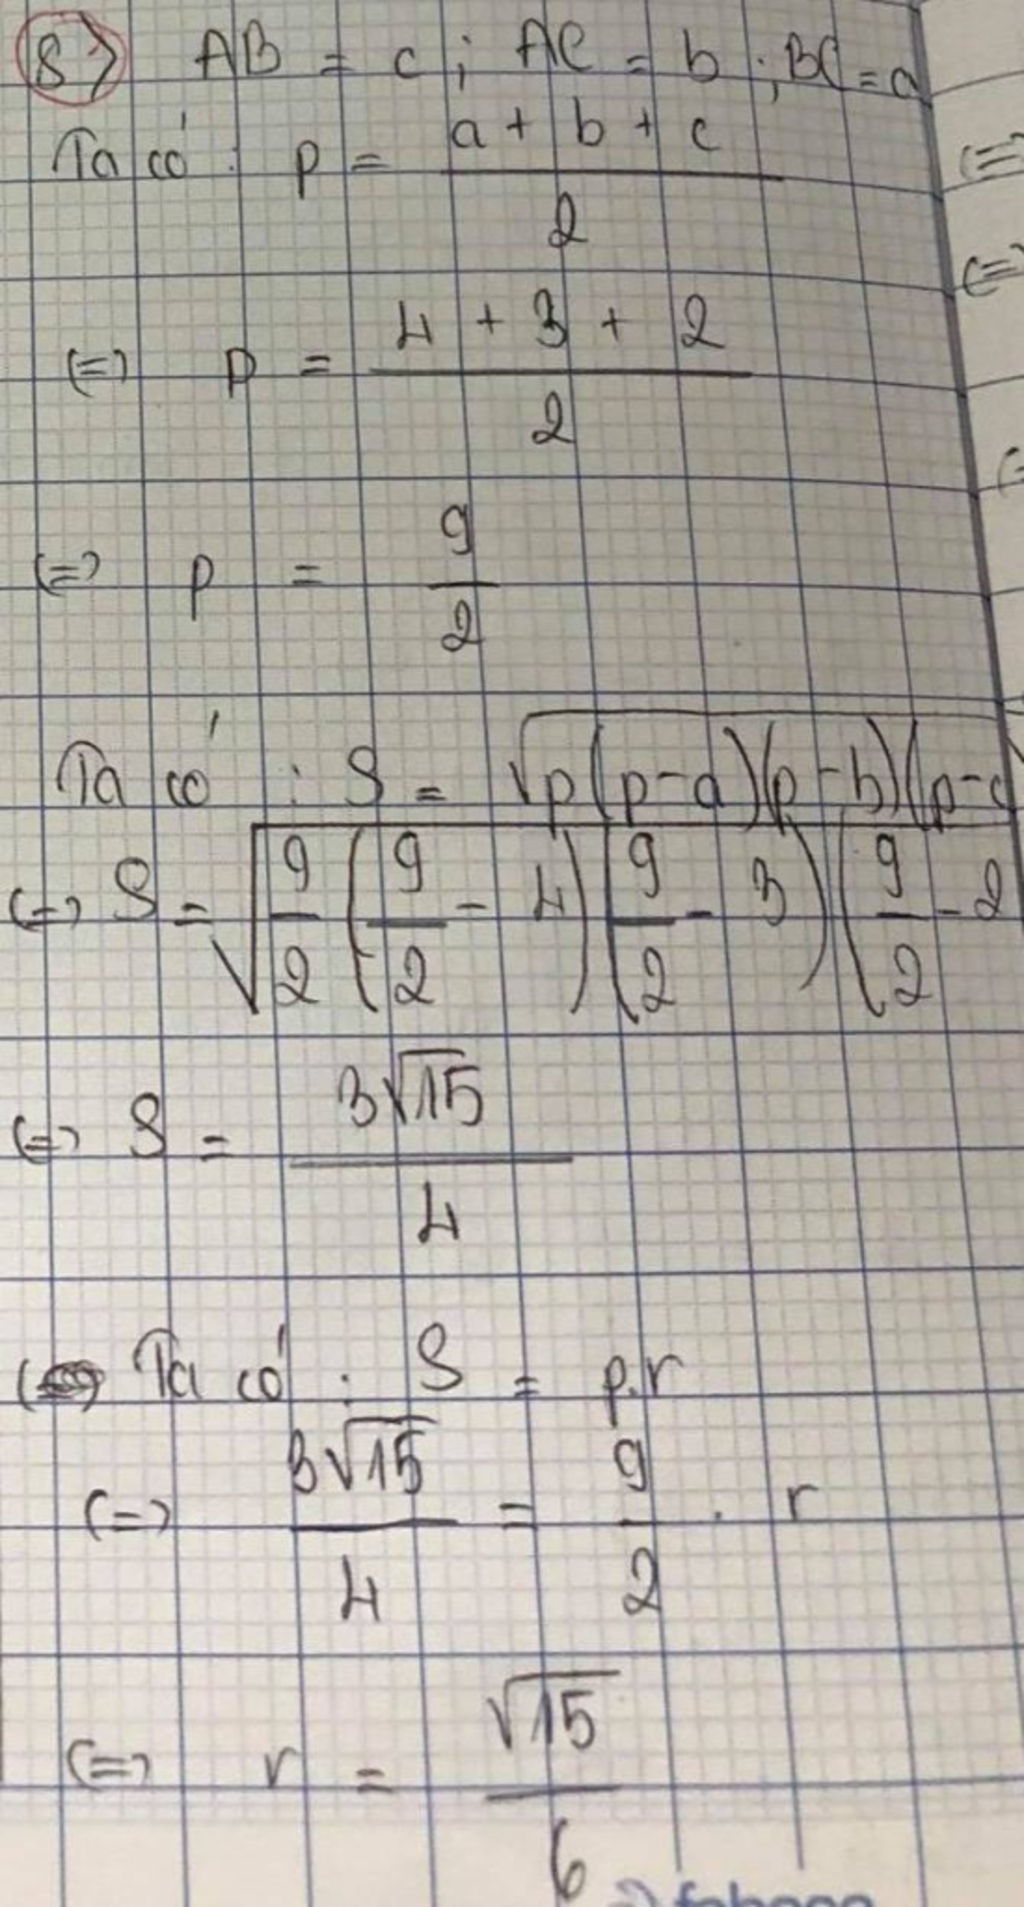 8) AB = c ; AC = b ; BC = a
Ta có : p = (a + b + c)/2
(=) p = (4 + 3 + 2)/2
(=) p = 9/2
Ta có : S = √p(p-a)(p-b)(p-c
(=) S = √9/2 (9/2 - 4)(9/2 - 3)(9/2 - 2
(=) S = 3√15/4
Ta có : S = p.r
(=) 3√15/4 = 9/2 . r
(=) r = √15/6
(=)
(=)